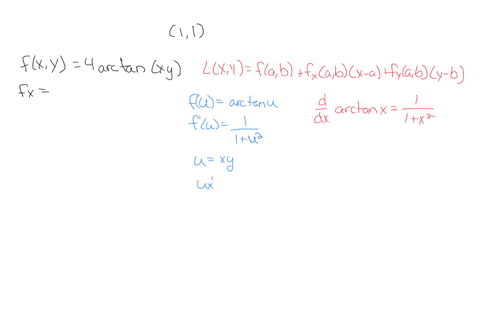 (1,1)
f(x,y) = 4 arctan(xy)
L(x,y) = f(a,b) + fx(a,b)(x-a) + fy(a,b)(y-b)
fx =
f(u) = arctan u
f'(u) = 1/(1+u²)
u = xy
ux'
d/dx arctan x = 1/(1+x²)